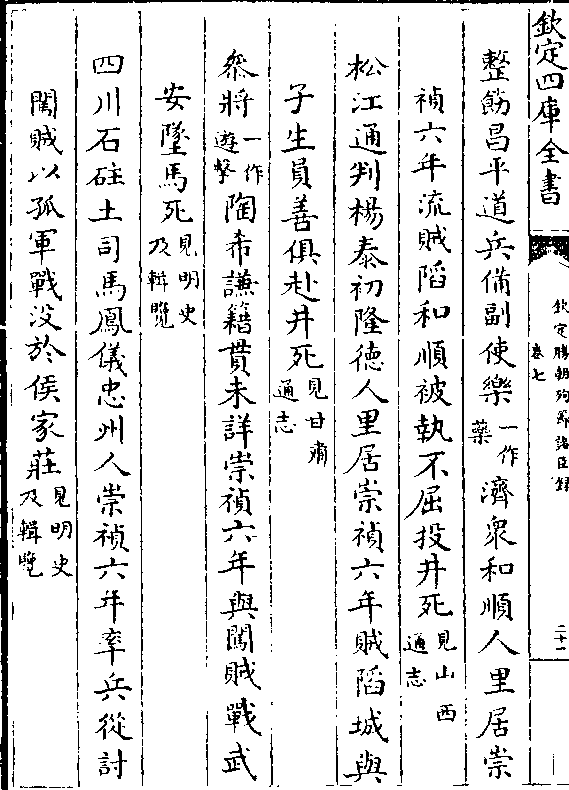 欽定四庫全書
欽定勝朝殉節諸臣錄
卷七
二十一
整飭昌平道兵備副使樂一作藥濟衆和順人里居崇
禎六年流賊䧟和順被執不屈投井死見山西通志
松江通判楊泰初隆德人里居崇禎六年賊䧟城與
子生員善俱赴井死見甘肅通志
叅將一作遊擊陶希謙籍貫未詳崇禎六年與闖賊戰武
安墜馬死見明史及輯覽
四川石砫土司馬鳳儀忠州人崇禎六年率兵從討
闖賊以孤軍戰没於侯家莊見明史及輯覽